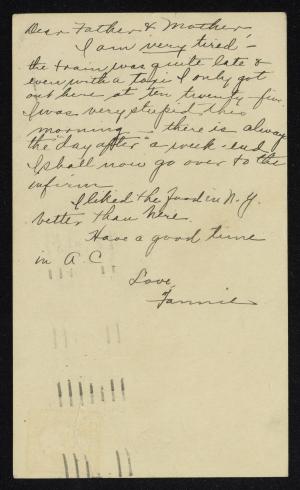 Dear Father & Mother
I am very tired -
the train was quite late &
even with a taxi I only got
out here at ten twenty-five
I was very stupid this
morning - there is always
the "day after" a week-end
I shall now go over to the
infirm
I liked the food in N.Y.
better than here.
Have a good time
in A.C
Love,
Fannie